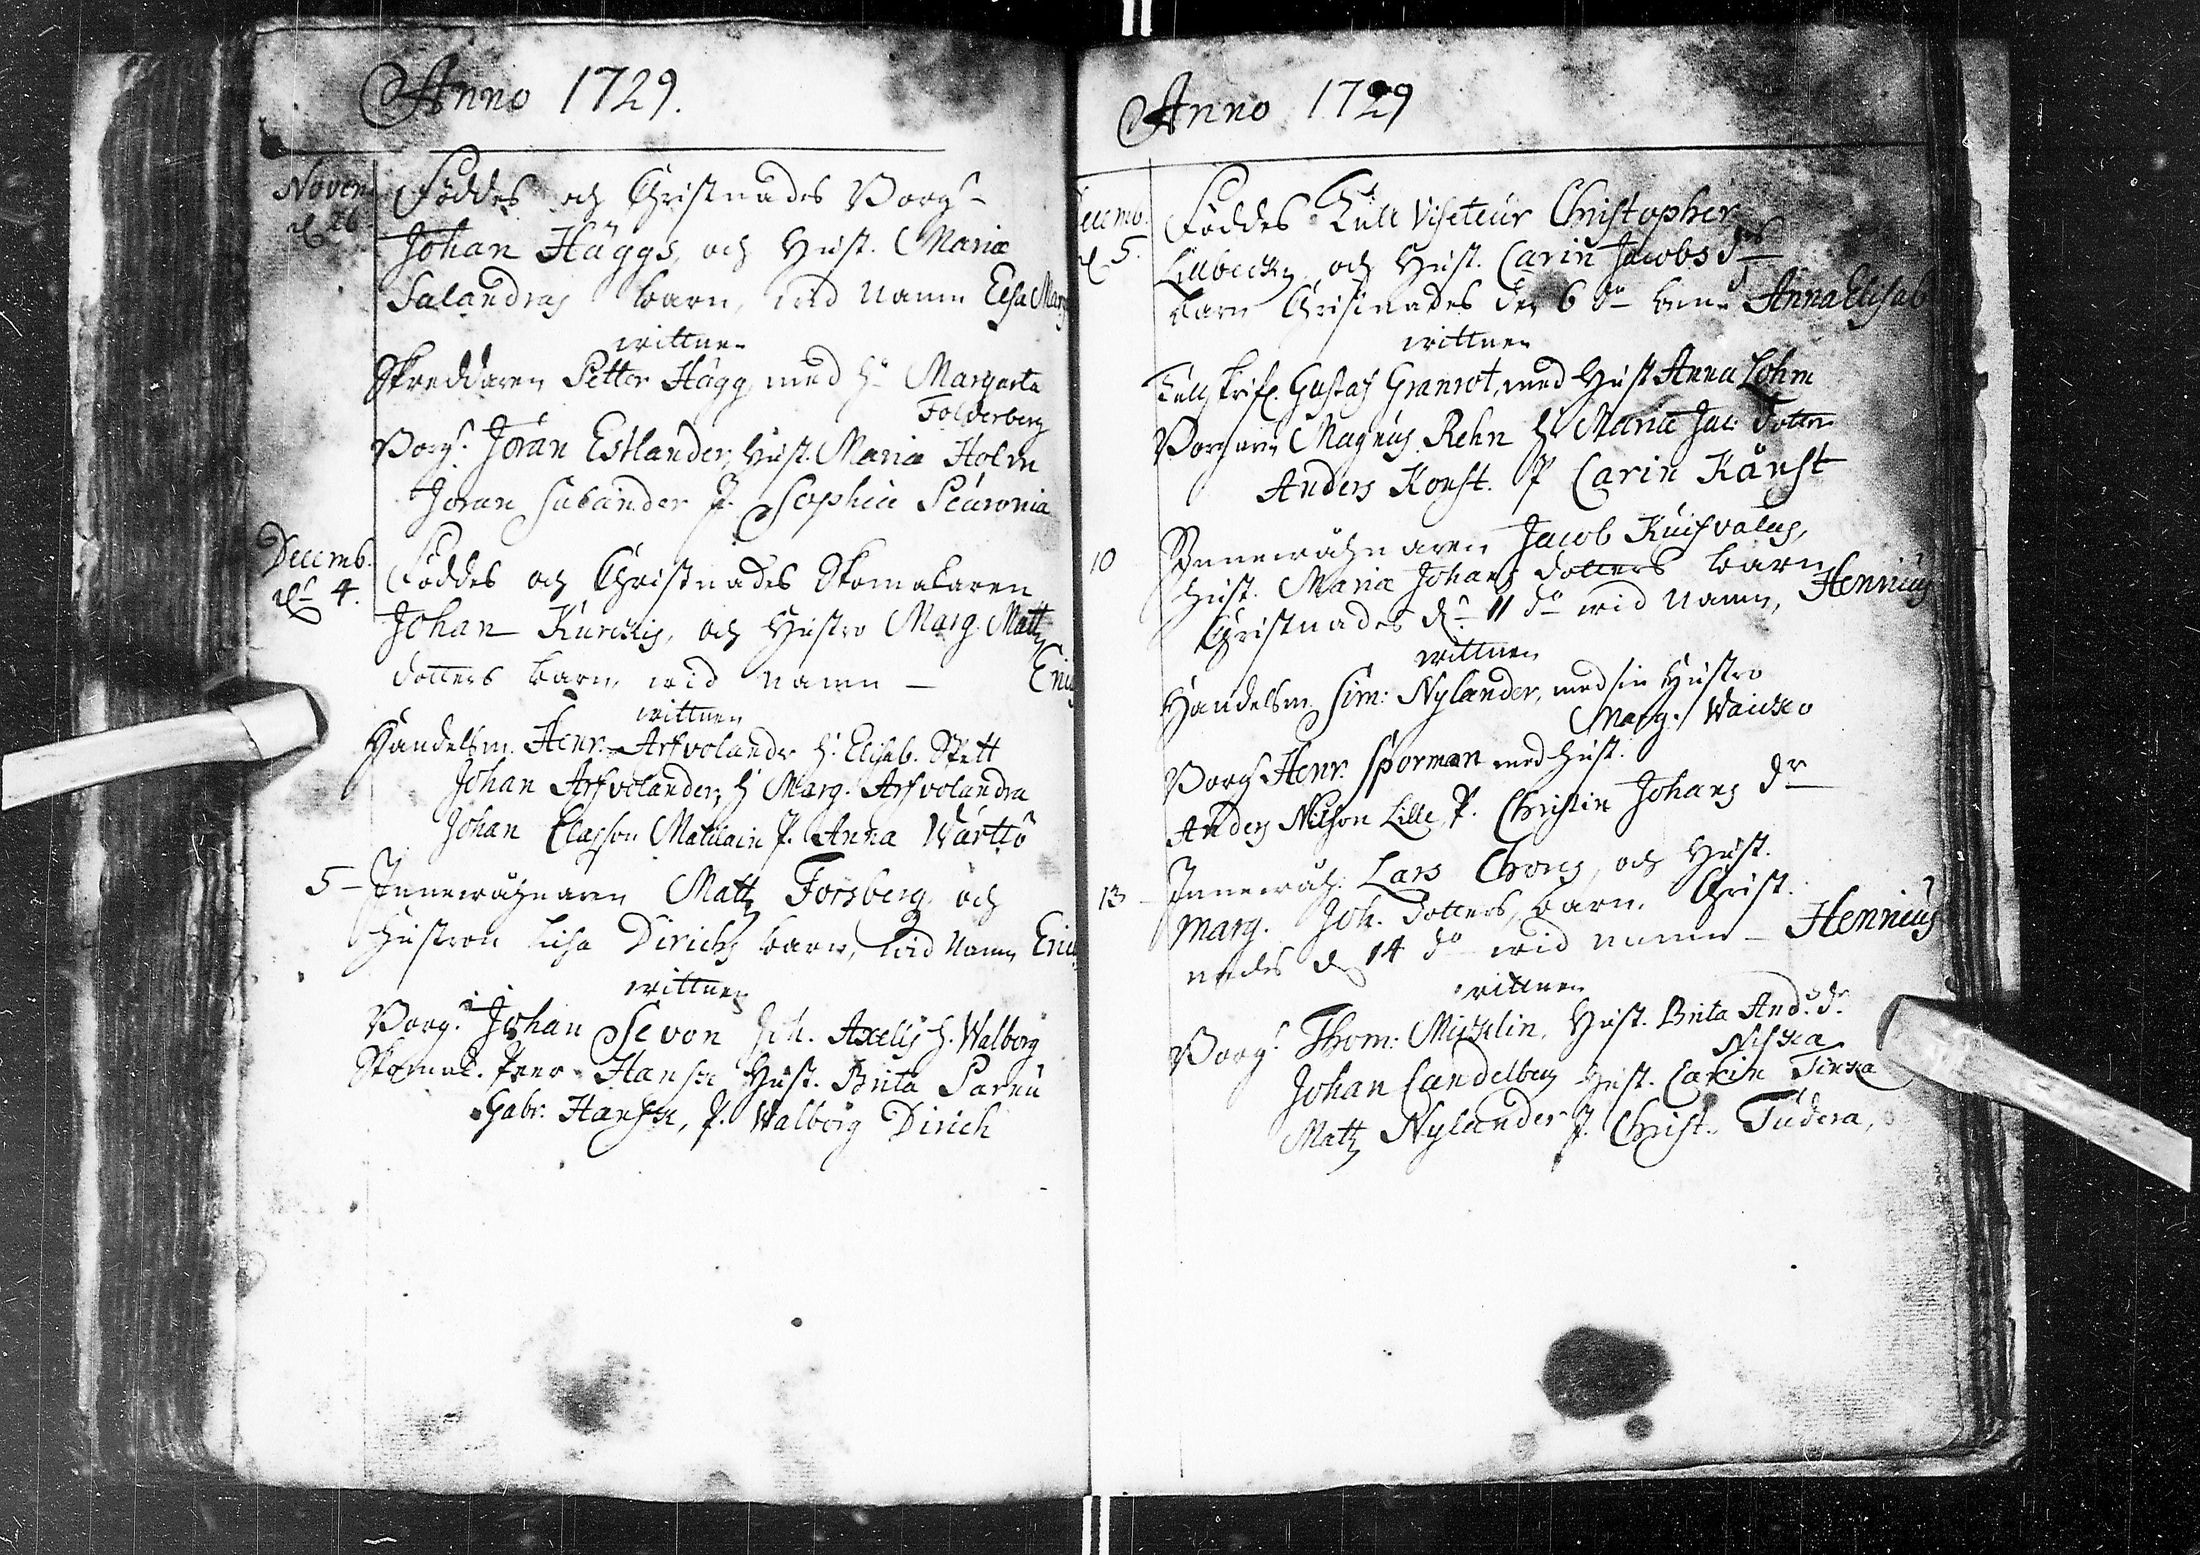 Anno 1729.
Novem
d 26
Föddes och Christnades Borg:
Johan Häggs, och Hust. Maria
Salandras barn, wid Namn Elsa Marg
wittnen
Skreddaren Petter Hägg, med H. Margareta
Folderberg
Borg: Jöran Estlander, Hust. Maria Holm
Jöran Salander P. Sophia
Decemb.
d. 4.
Föddes och Christnades Skomakaren
Johan och Hustro Marg. Matts
dotters barn, wid namn — Eric
wittnen
Handelsm. Henr. Arfvolander H. Elisab. Spett
Johan Arfvolander, H Marg. Arfvolandra
Johan Classon P. Anna Wärttö
5 — Innewåhnaren Matts Forsberg och
Hustrun Lisa Dirichs barn, wid Namn Eric
wittnen
Borg: Johan Sevon Joh. Axelis H. Walborg
Skomak. Hansen Hust. Brita
Gabr. Hansen, P. Walborg Dirich
Anno 1729
Decemb.
d 5.
Föddes Tull Visiteur Christopher
och Hust. Carin Jacobs dr
barn Christnades den 6 do Anna Elisab
wittnen
Gustaf Granrot, med Hust Anna Lohm
Borgaren Magnus Rehn H Maria Jac: dotter
Anders Konst. P Carin Känst
10
Innewåhnaren Jacob
Hust. Maria Johans dotters barn
Christnades d. 11 do wid namn, Henricus
wittnen
Handelsm. Sim: Nylander, med sin Hustro
Marg.
Borg: Henr. Sporman med Hust.
Anders Nilsson Lille, P. Christin Johans dr
13 —
Innewåh. Lars och Hust.
Marg. Joh. dotters, barn, Christ-
nades d 14 do wid namn — Henricus
wittnen
Borg: Thom: Hust. Brita And. dr.
Johan Candelberg Hust. Carin
Matts Nylander P. Christ. Tudera,